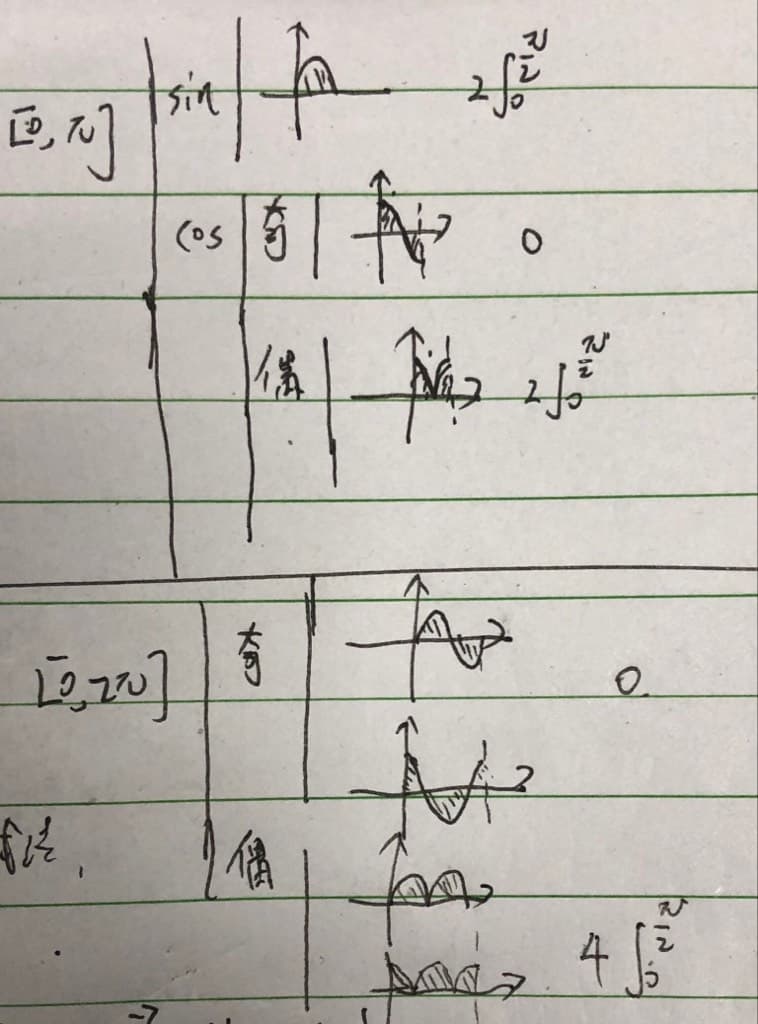 [0, π] sin 2∫₀^{π/2}
cos 奇 0
偶 2∫₀^{π/2}
[0, 2π] 奇 0.
偶 4∫₀^{π/2}